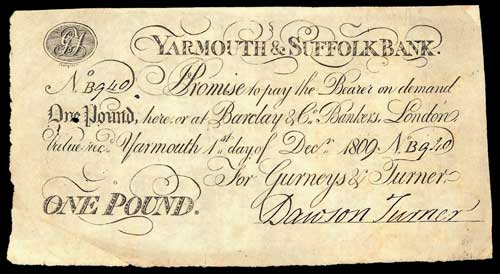 YARMOUTH & SUFFOLK BANK.
No B940 I Promise to pay the Bearer on demand
One Pound, here or at Barclay & Co. Bankers, London
Value recd. Yarmouth 1st day of Decr. 1809 No B940
For Gurneys & Turner
ONE POUND. Dawson Turner